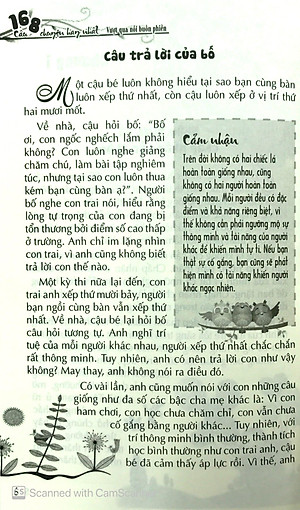 168
Câu chuyện hay nhất Vượt qua nỗi buồn phiền
Câu trả lời của bố
Một cậu bé luôn không hiểu tại sao bạn cùng bàn
luôn xếp thứ nhất, còn cậu luôn xếp ở vị trí thứ
hai mươi mốt.
Về nhà, cậu hỏi bố: “Bố
ơi, con ngốc nghếch lắm phải
không? Con luôn nghe giảng
chăm chú, làm bài tập nghiêm
túc, nhưng tại sao con luôn thua
kém bạn cùng bàn ạ?”. Người
bố nghe con trai nói, hiểu rằng
lòng tự trọng của con đang bị
tổn thương bởi điểm số cao thấp
ở trường. Anh chỉ im lặng nhìn
con trai, vì anh cũng không biết
trả lời con thế nào.
Cảm nhận
Trên đời không có hai chiếc lá
hoàn toàn giống nhau, cũng
không có hai người hoàn toàn
giống nhau. Mỗi người đều có đặc
điểm và khả năng riêng biệt, vì
thế không cần phải ngưỡng mộ sự
thông minh và tài năng của người
khác để khiến mình tự ti. Nếu bạn
thật sự cố gắng, bạn cũng sẽ phát
hiện mình có tài năng khiến người
khác ngạc nhiên.
Một kỳ thi nữa lại đến, con
trai anh xếp thứ mười bảy, người
bạn ngồi cùng bàn vẫn xếp thứ
nhất. Về nhà, cậu bé lại hỏi bố
câu hỏi tương tự. Anh nghĩ trí
tuệ của mỗi người khác nhau, người xếp thứ nhất chắc chắn
rất thông minh. Tuy nhiên, anh có nên trả lời con như vậy
không? May thay, anh không nói ra điều đó.
Có vài lần, anh cũng muốn nói với con những câu
giống như đa số các bậc cha mẹ khác là: Vì con
ham chơi, con học chưa chăm chỉ, con vẫn chưa
cố gắng bằng người khác... Tuy nhiên, với
trí thông minh bình thường, thành tích
học bình thường như con trai anh, cậu
bé đã cảm thấy áp lực rồi. Vì thế, anh
Scanned with CamSc